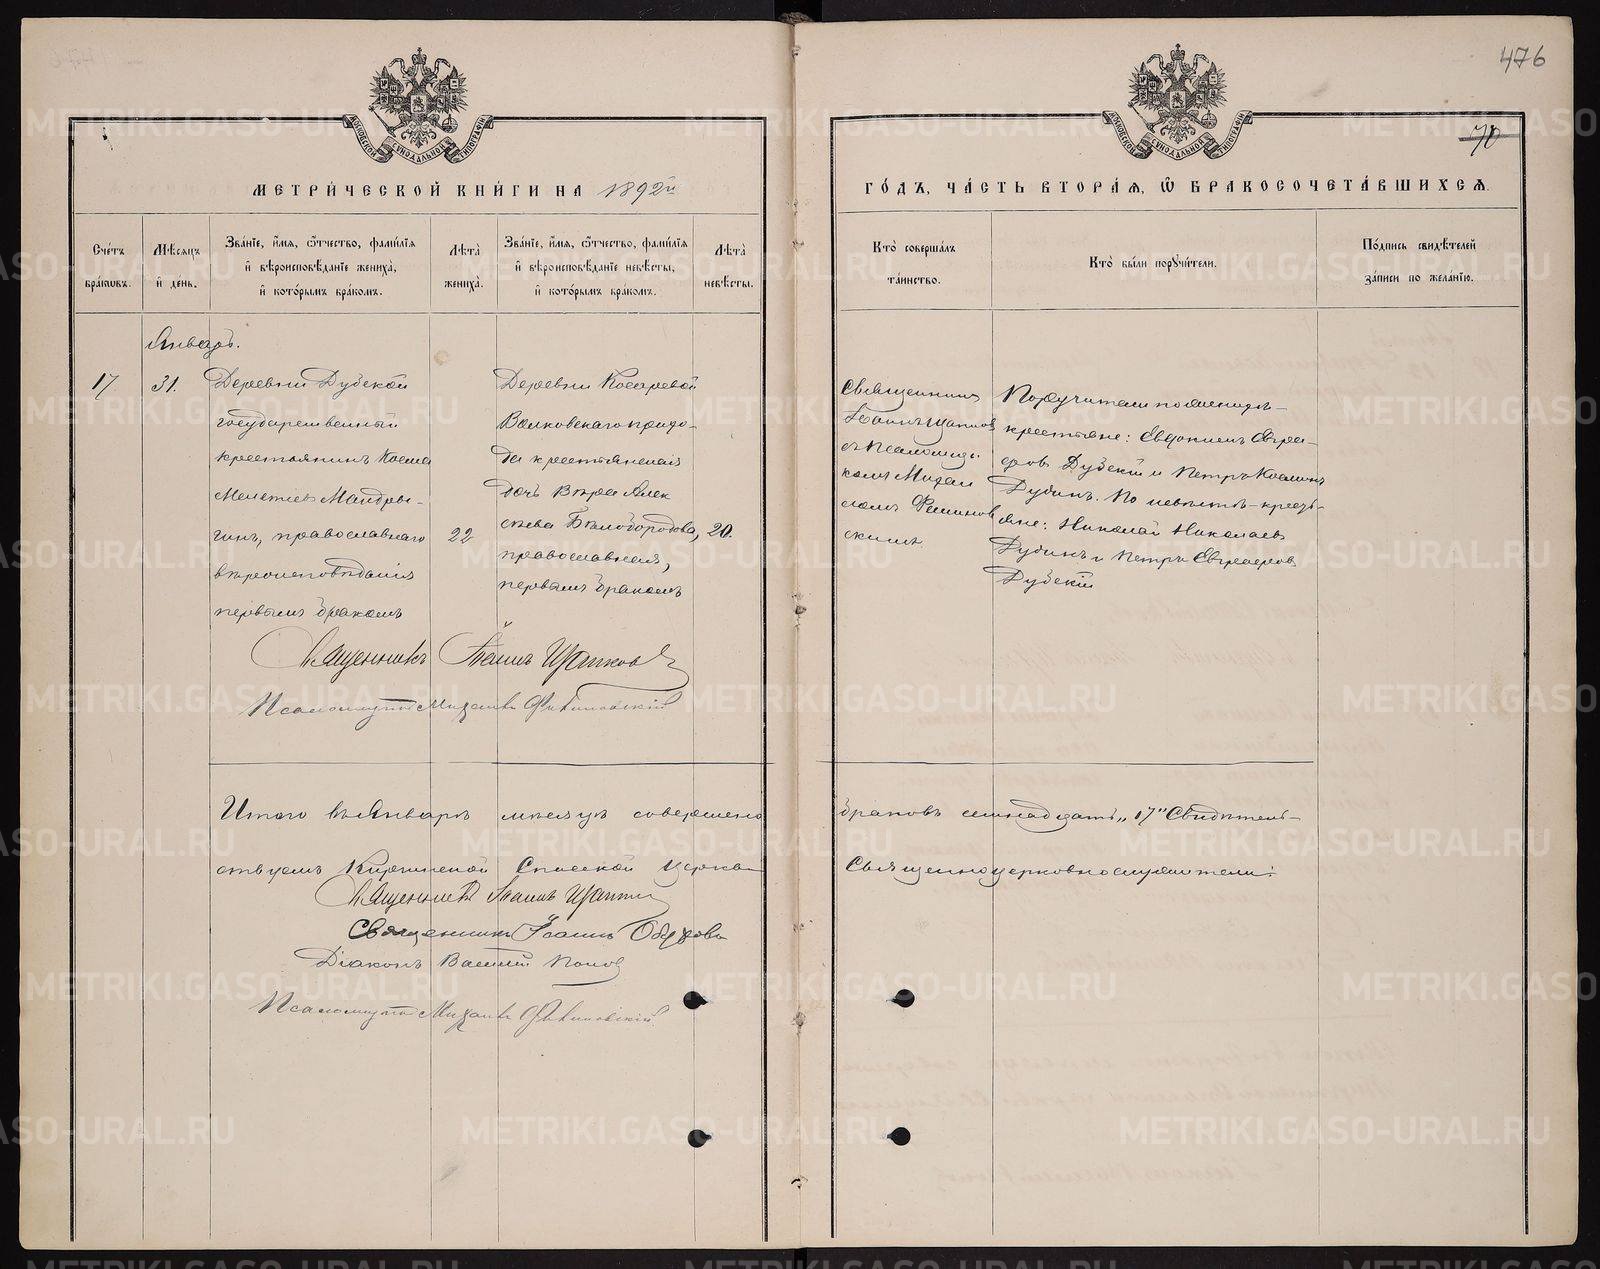 476
70
МЕТРИ́ЧЕСКОЙ КНИ́ГИ НА 1892й
ГО́ДЪ, ЧА́СТЬ ВТОРА́Я, Ѽ БРАКОСОЧЕТА́ВШИХСЯ.
МОСКОВСКОЙ СѴНОДАЛЬНОЙ ТИПОГРАФІИ
МОСКОВСКОЙ СѴНОДАЛЬНОЙ ТИПОГРАФІИ
Сче́тъ бра́ковъ.
Мѣ́сяцъ и де́нь.
Зва́ніе, и́мя, ѻ҆́тчество, фами́лія и вѣроисповѣ́даніе жениха̀, и кото́рымъ бра́комъ.
Лѣта̀ жениха̀.
Зва́ніе, и́мя, ѻ҆́тчество, фами́лія и вѣроисповѣ́даніе невѣ́сты, и кото́рымъ бра́комъ.
Лѣта̀ невѣ́сты.
Кто̀ соверша́лъ та́инство.
Кто̀ бы́ли пору́чители.
По́дпись свидѣ́телей за́писи по жела́нію.
Январь.
17
31.
Деревни Дубской
государственный
крестьянинъ Косма
Мелетіевъ Мандры-
гинъ, православнаго
вѣроисповѣданія
первымъ бракомъ
22
Деревни Косаревой
Волковскаго прихо-
да крестьянская
дочь Вѣра Алек
сѣева Бѣлобородова,
православная,
первымъ бракомъ
20.
Священникъ
Іоаннъ
съ псаломщи
комъ Михаи
ломъ
скимъ.
Поручители по женихѣ-
крестьяне: Евдокимъ Евгра-
фовъ Дубскій и Петръ Косминъ
Дубинъ. По невѣстѣ - кресть-
яне: Николай Николаевъ
Дубинъ и Петръ Евграфовъ
Дубскій
Священникъ Іоаннъ
Псаломщикъ Михаилъ
Итого въ Январѣ мѣсяцѣ совершено
браковъ семнадцать „17" Свидѣтель-
ствуемъ Киргинской Спасской Церкви
Священноцерковнослужители:
Священникъ Іоаннъ
Священникъ Іоаннъ Обуховъ
Діаконъ Василій Поповъ
Псаломщикъ Михаилъ
METRIKI.GASO-URAL.RU